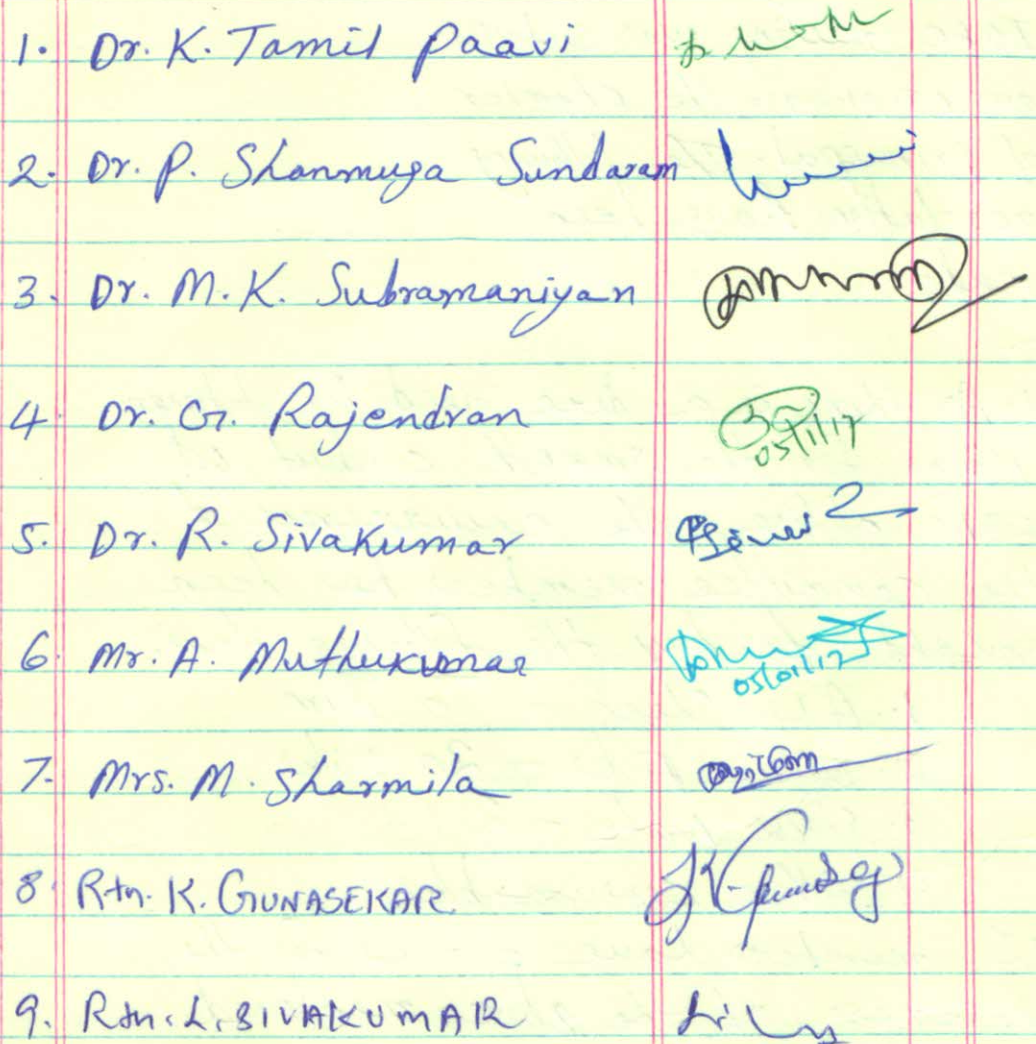 1. Dr. K. Tamil Paavi
2. Dr. P. Shanmuga Sundaram
3. Dr. M.K. Subramaniyan
4. Dr. G. Rajendran
05/1/17
5. Dr. R. Sivakumar
6. Mr. A. Muthukumar
05/01/17
7. Mrs. M. Sharmila
8. Rtn. K. GUNASEKAR
9. Rtn. L. SIVAKUMAR